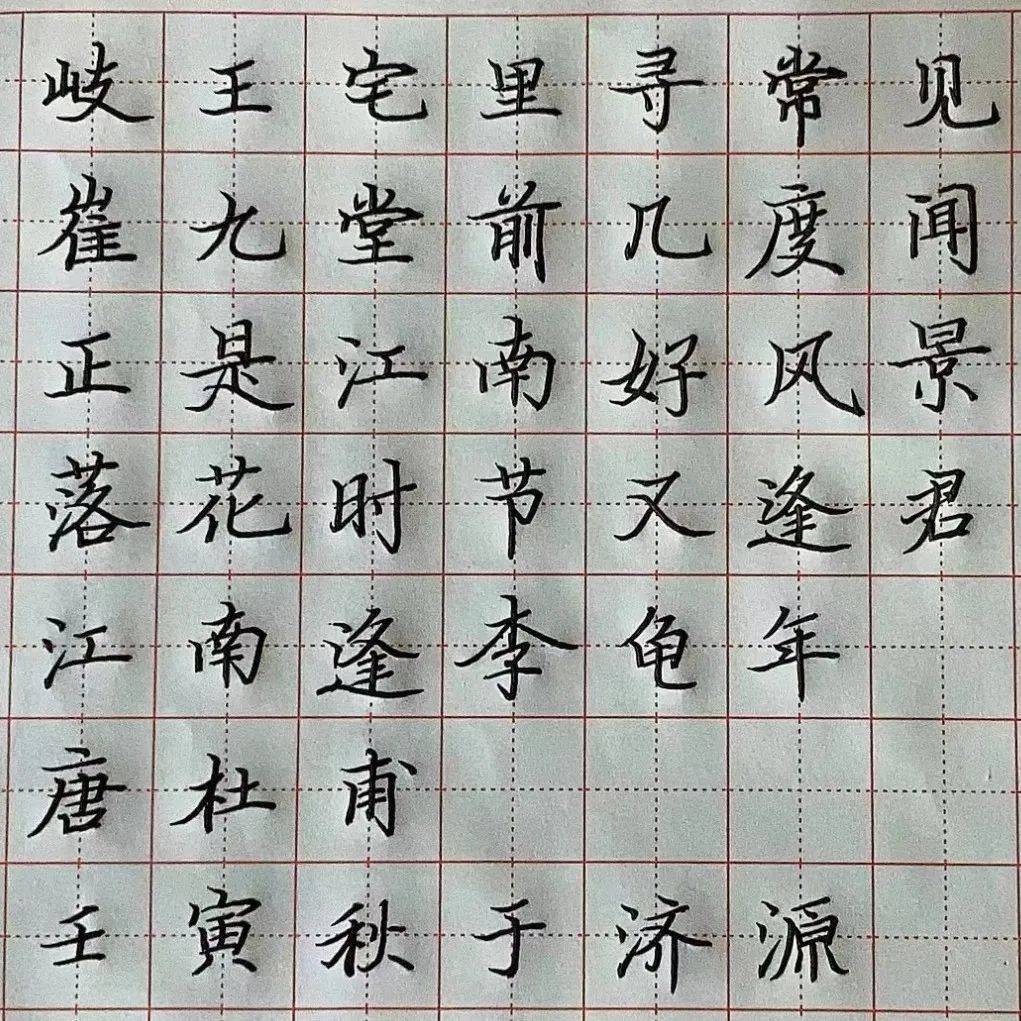 岐王宅里寻常见
崔九堂前几度闻
正是江南好风景
落花时节又逢君
江南逢李龟年
唐杜甫
壬寅秋于济源